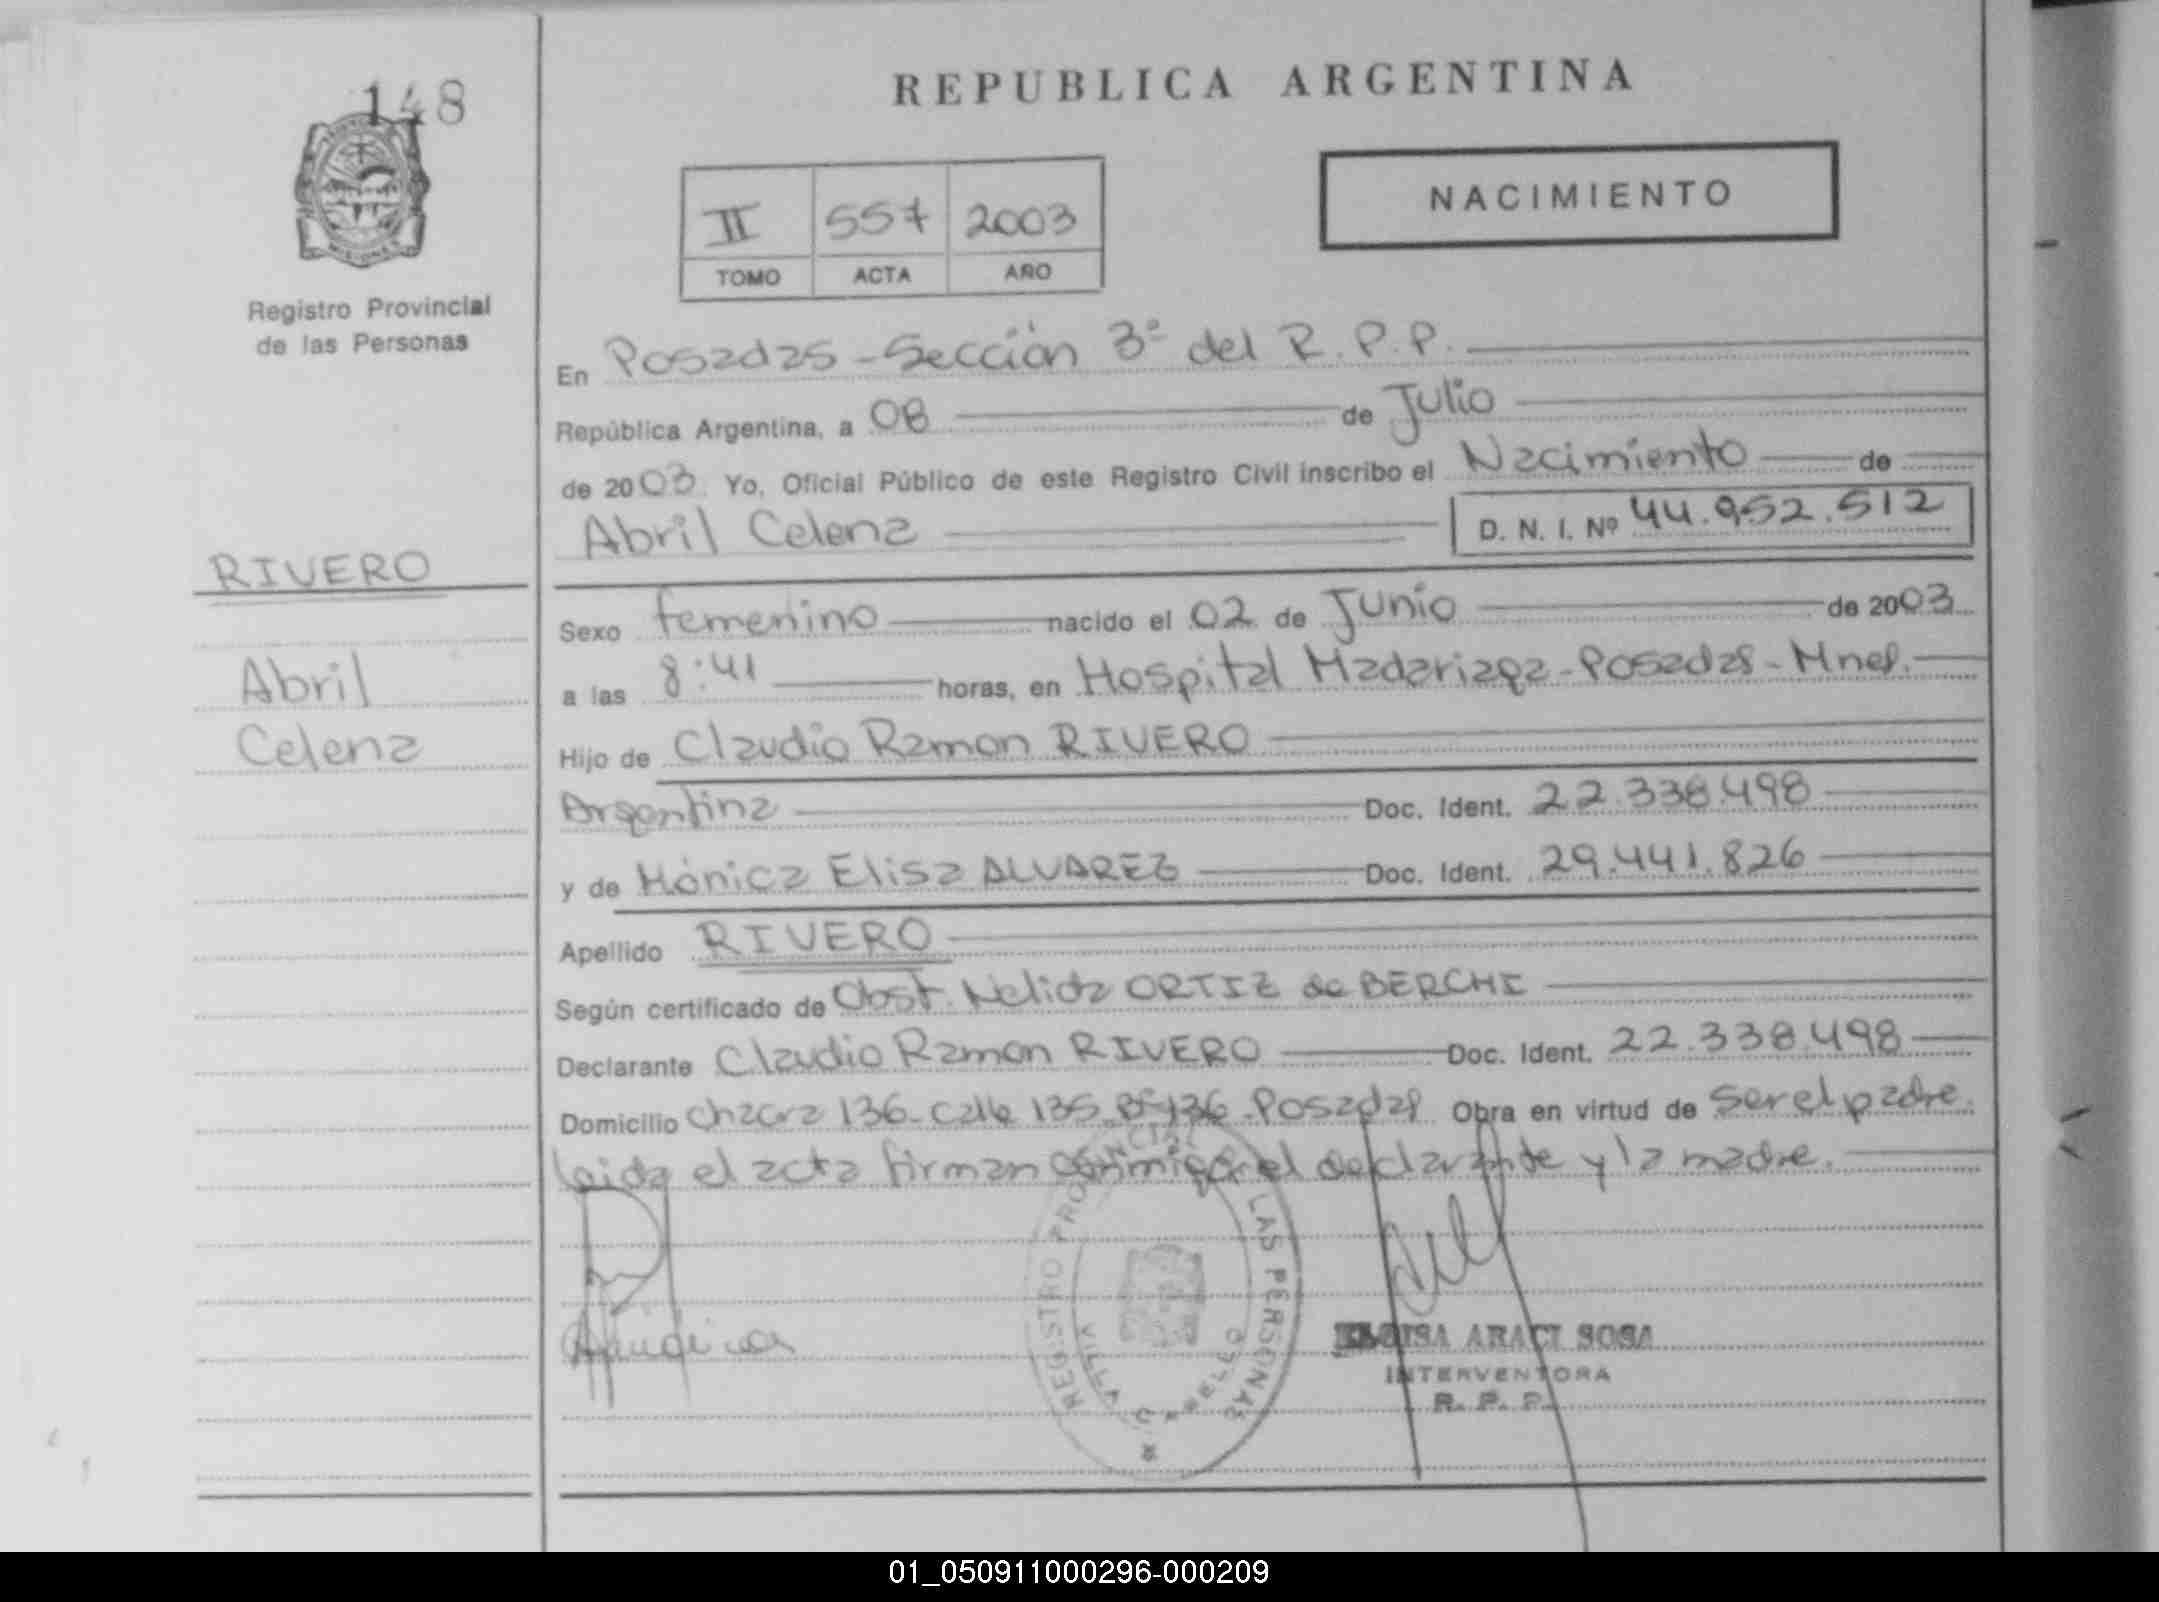 148
REPUBLICA ARGENTINA
NACIMIENTO
II 557 2003
TOMO ACTA AÑO
Registro Provincial
de las Personas
En Posadas - Sección 3º del R.P.P.
República Argentina, a 08 de Julio
de 2003 Yo, Oficial Público de este Registro Civil inscribo el Nacimiento de
Abril Celena D. N. I. Nº 44.952.512
RIVERO
Abril
Celena
Sexo femenino nacido el 02 de Junio de 2003
a las 8:41 horas, en Hospital Madariaga - Posadas - Mnes.
Hijo de Claudio Ramon RIVERO
Argentina Doc. Ident. 22.338.498
y de Mónica Elisa ALVAREZ Doc. Ident. 29.441.826
Apellido RIVERO
Según certificado de Obst. Nelida ORTIZ de BERCHI
Declarante Claudio Ramon RIVERO Doc. Ident. 22.338.498
Domicilio Chacra 136 - Calle 135 Posadas Obra en virtud de ser el padre.
leida el acta firman conmigo el declarante y la madre.
REGISTRO PROVINCIAL LAS PERSONAS
VILLA
ELOISA ARACI SOSA
INTERVENTORA
R. P. P.
01_050911000296-000209